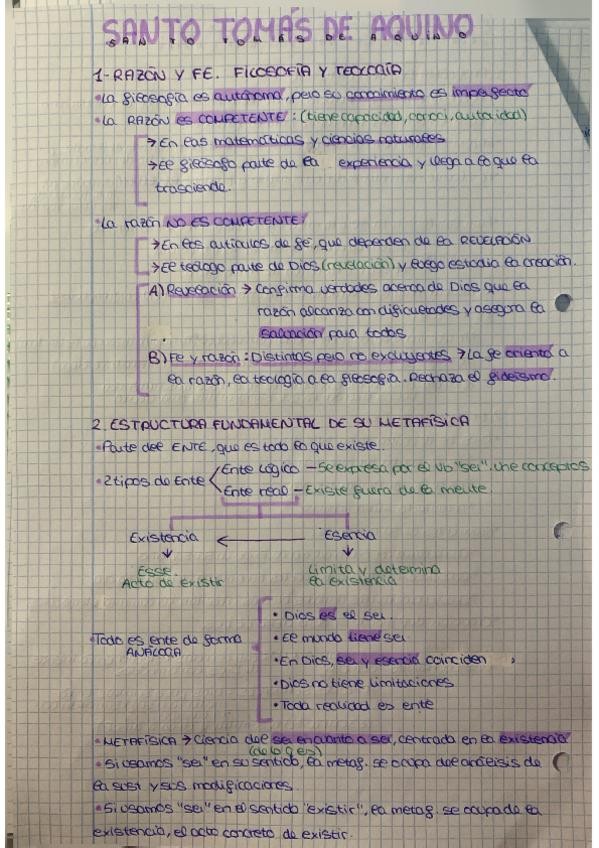 SANTO TOMÁS DE AQUINO
1- RAZÓN Y FE. FILOSOFÍA Y TEOLOGÍA
• La filosofía es autónoma, pero su conocimiento es imperfecto
• La RAZÓN ES COMPETENTE: (tiene capacidad, conoci, autoridad)
→ En las matemáticas y ciencias naturales
→ El filósofo parte de la experiencia y llega a lo que la
trasciende.
• La razón NO ES COMPETENTE:
→ En los artículos de fe, que dependen de la REVELACIÓN
→ El teólogo parte de Dios (revelación) y luego estudia la creación.
A) Revelación → Confirma verdades acerca de Dios que la
razón alcanza con dificultades y asegura la
salvación para todos
B) Fe y razón: Distintas pero no excluyentes → La fe orienta a
la razón, la teología a la filosofía. Rechaza el fideísmo.
2. ESTRUCTURA FUNDAMENTAL DE SU METAFÍSICA
• Parte del ENTE, que es todo lo que existe.
• 2 tipos de Ente
Ente lógico - Se expresa por el vb "ser". Une conceptos
Ente real - Existe fuera de la mente.
Existencia ← Esencia
Esse. Limita y determina
Acto de existir la existencia
• Todo es ente de forma
ANÁLOGA
• Dios es el ser.
• El mundo tiene ser
• En Dios, ser y esencia coinciden
• Dios no tiene limitaciones
• Toda realidad es ente
• METAFÍSICA → Ciencia del ser en cuanto a ser, centrada en la existencia
(de lo q es)
• Si usamos "ser" en su sentido, la metaf. se ocupa del análisis de
la sust y sus modificaciones.
• Si usamos "ser" en el sentido "existir", la metaf. se ocupa de la
existencia, el acto concreto de existir.